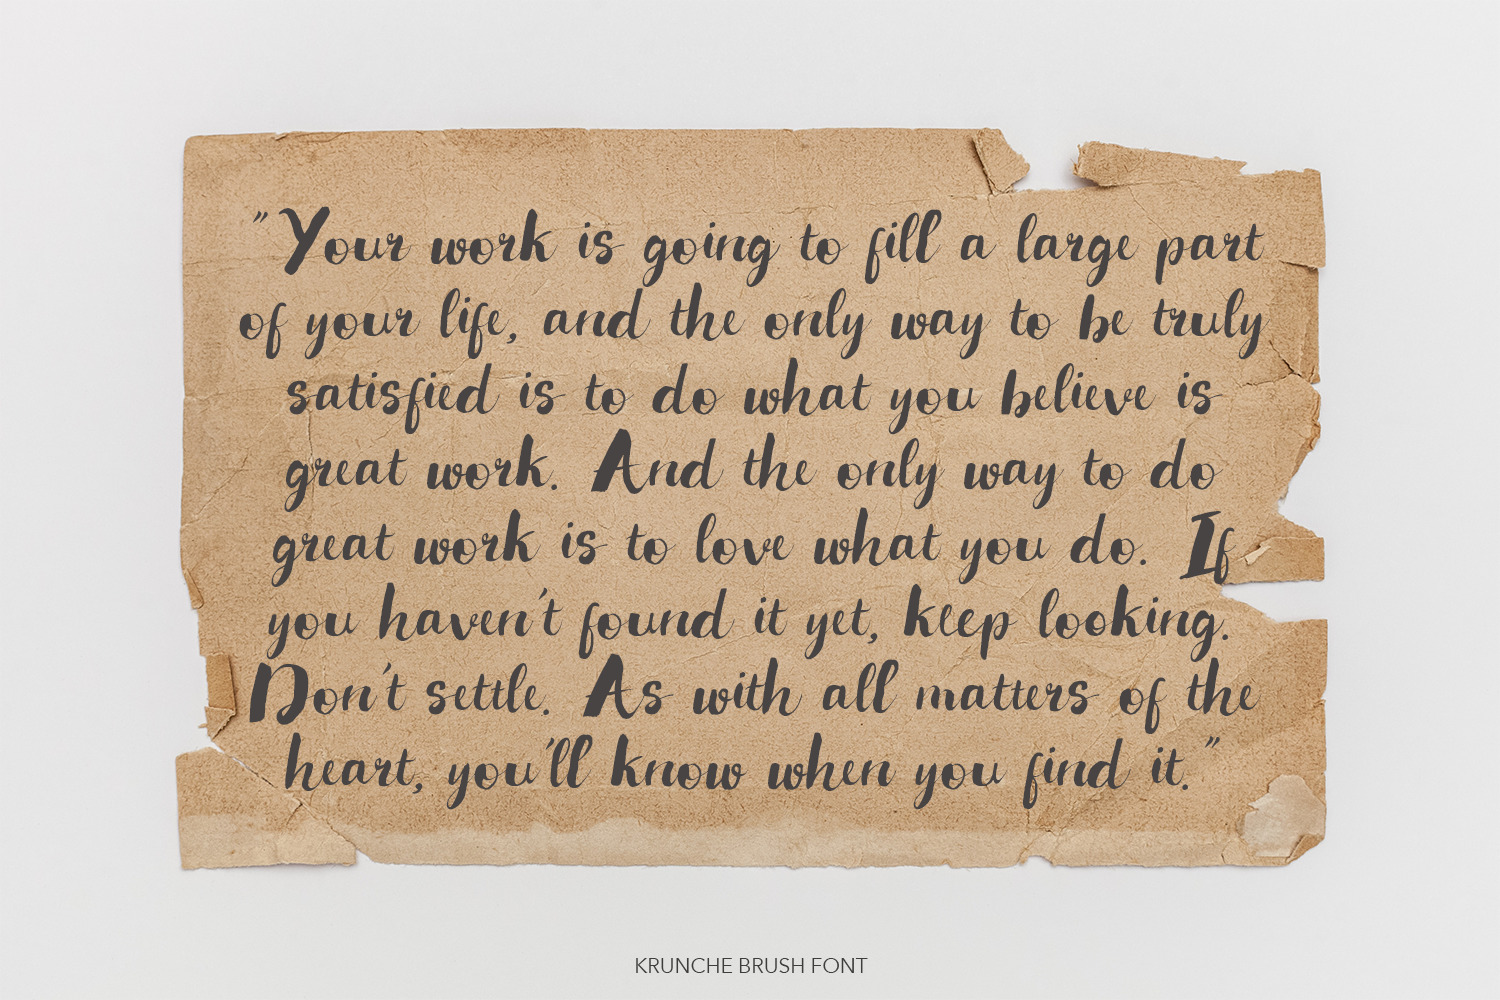 "Your work is going to fill a large part
of your life, and the only way to be truly
satisfied is to do what you believe is
great work. And the only way to do
great work is to love what you do. If
you haven't found it yet, keep looking.
Don't settle. As with all matters of the
heart, you'll know when you find it."
KRUNCHE BRUSH FONT